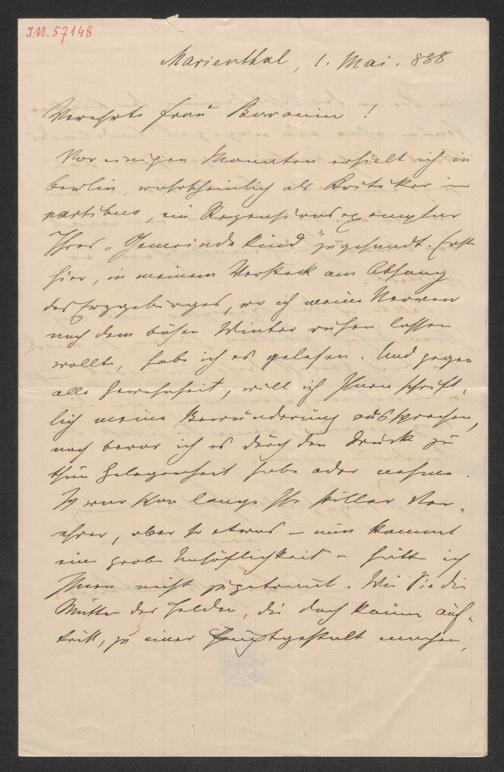 I.N. 57148
Marienthal, 1. Mai. 888
Verehrte Frau Baronin!
Vor einigen Monaten erhielt ich in
Berlin, wahrscheinlich als Kritiker in
partibus, ein Rezensionsexemplar
Ihres „Gemeindekind" zugesandt. Erst
hier, in meinem Versteck am Abhang
des Erzgebirges, wo ich meine Nerven
nach dem bösen Winter ruhen lassen
wollt, habe ich es gelesen. Und gegen
alle Gewohnheit, will ich Ihnen schrift-
lich meine Bewunderung aussprechen,
noch bevor ich es durch den Druck zu
thun Gelegenheit habe oder nehme.
Ich war schon längst Ihr stiller Ver-
ehrer, aber so etwas – nun kommt
eine grobe Unhöflichkeit – hätt ich
Ihnen nicht zugetraut. Wie Sie die
Mutter des Helden, die doch kaum auf-
tritt, zu einer Hauptgestalt machen,